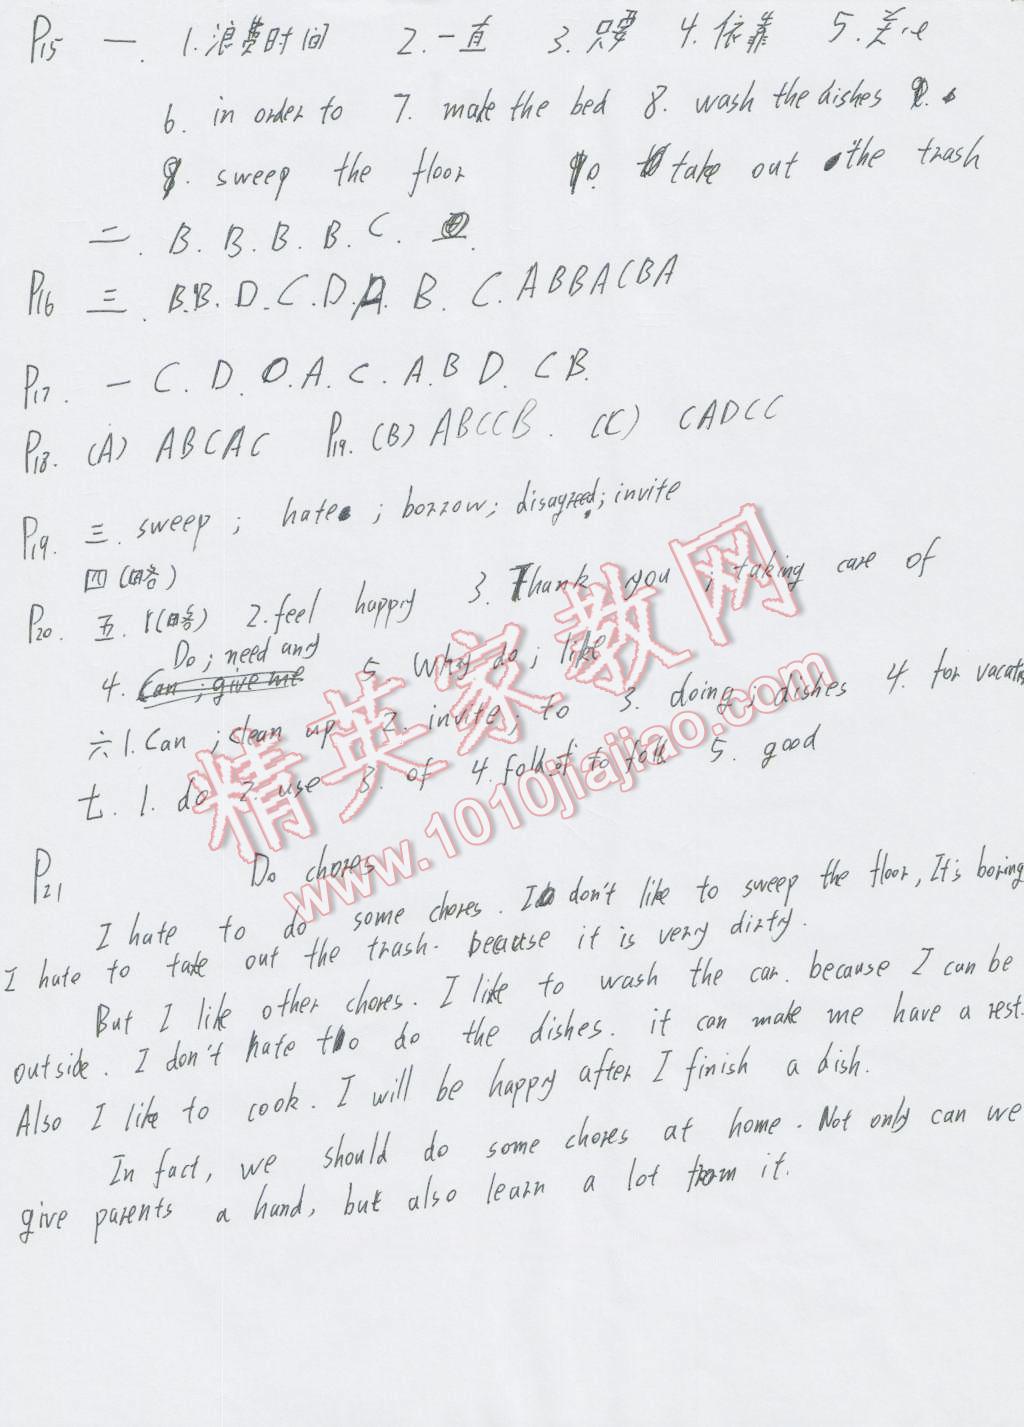 P15 一. 1.浪费时间 2.一直 3.只要 4.依靠 5.关心
6. in order to 7. make the bed 8. wash the dishes
9. sweep the floor 10. take out the trash
二. B. B. B. B. C.
P16 三. B.B. D. C. D. A. B. C. A B B A C B A
P17. 一 C. D. D. A. C. A. B D. C B.
P18. (A) A B C A C P19. (B) A B C C B. (C) C A D C C
P19. 三. sweep ; hate ; borrow; disagreed; invite
四 (略)
P20. 五. 1(略) 2.feel happy 3. Thank you ; taking care of
Do ; need any
4. Can ; give me 5. Why do ; like
六 1. Can ; clean up 2. invite ; to 3. doing ; dishes 4. for vacation
七. 1. do 2. use 3. of 4. to 5. good
P21 Do chores
I hate to do some chores. I don't like to sweep the floor, It's boring
I hate to take out the trash. because it is very dirty.
But I like other chores. I like to wash the car. because I can be
outside. I don't hate to do the dishes. it can make me have a rest.
Also I like to cook. I will be happy after I finish a dish.
In fact, we should do some chores at home. Not only can we
give parents a hand, but also learn a lot from it.
精英家教网
www.1010jiajiao.com